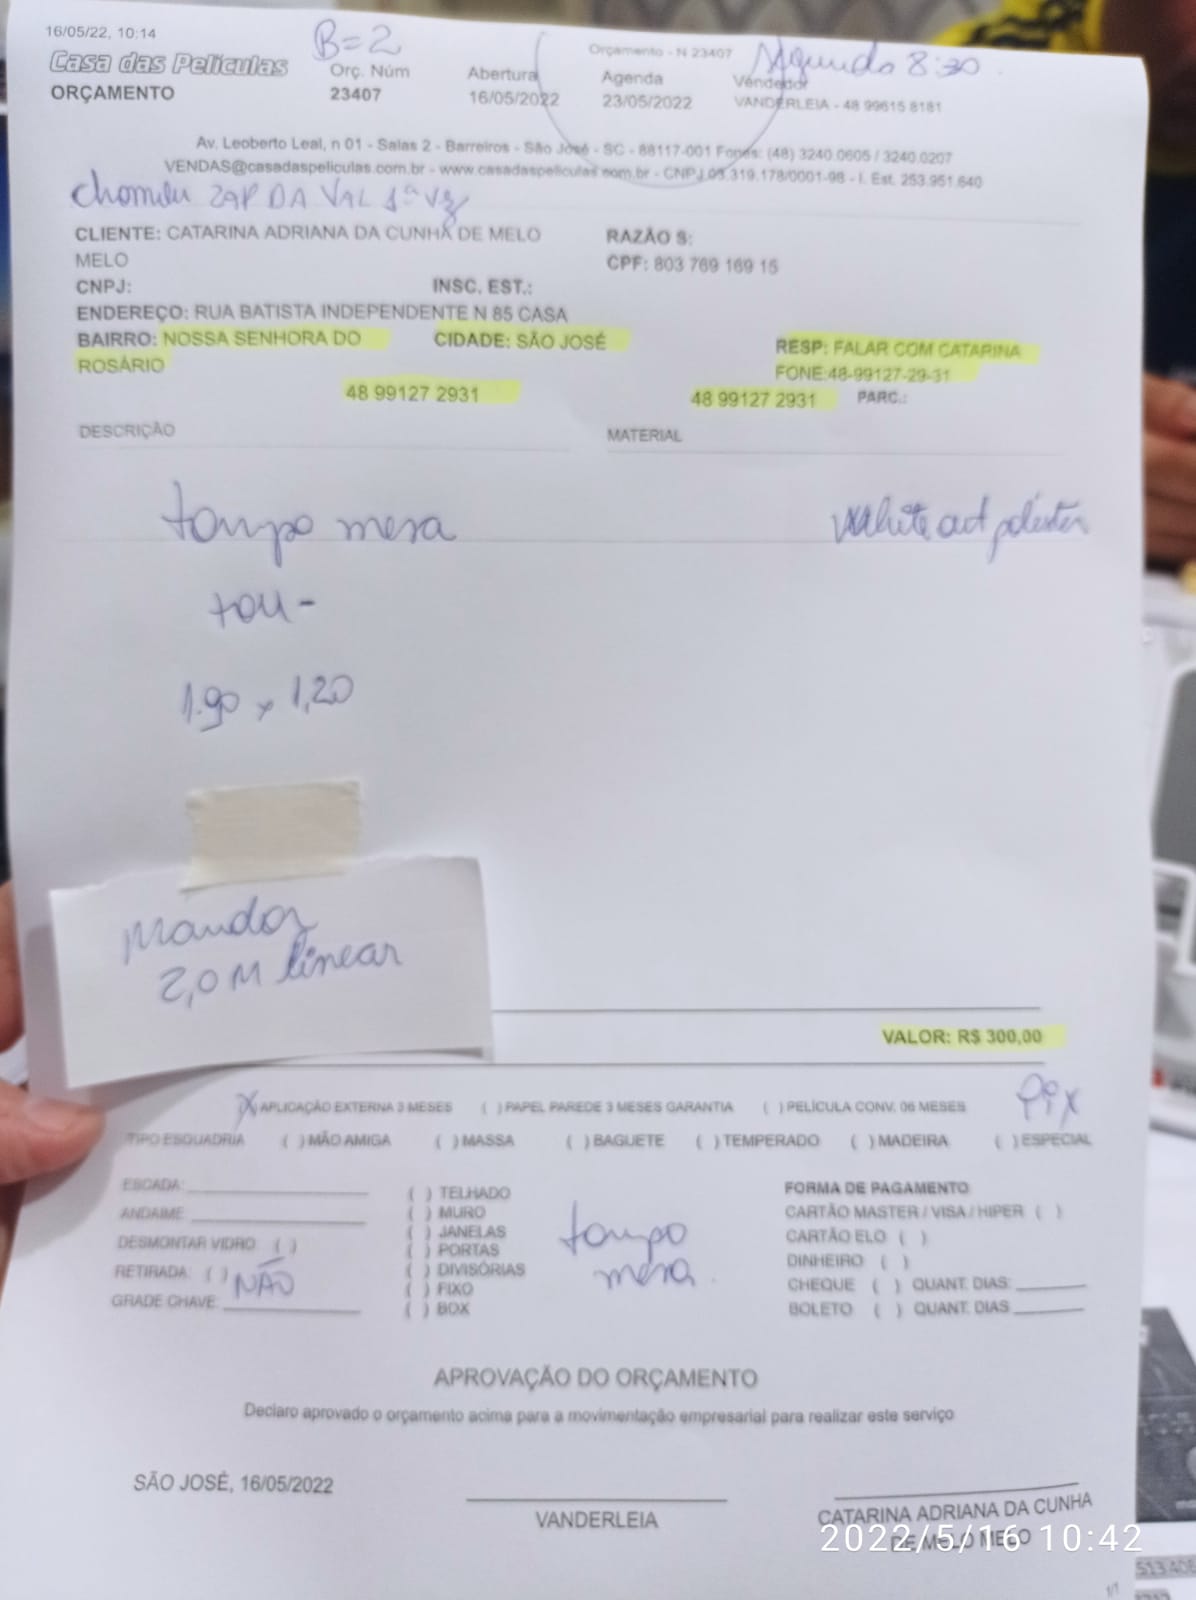 16/05/22, 10:14
B=2
Orçamento - N 23407
8:30
Casa das Películas
ORÇAMENTO
Orç. Núm
23407
Abertura
16/05/2022
Agenda
23/05/2022
Vendedor
VANDERLEIA - 48 99615 8181
Av. Leoberto Leal, n 01 - Salas 2 - Barreiros - São José - SC - 88117-001 Fones: (48) 3240.0605 / 3240.0207
VENDAS@casadaspeliculas.com.br - www.casadaspeliculas.com.br - CNPJ 05.319.178/0001-98 - I. Est. 253.951.640
ZAP DA VAL 1ª VZ
CLIENTE: CATARINA ADRIANA DA CUNHA DE MELO
MELO
RAZÃO S:
CPF: 803 769 169 15
CNPJ:
INSC. EST.:
ENDEREÇO: RUA BATISTA INDEPENDENTE N 85 CASA
BAIRRO: NOSSA SENHORA DO
ROSÁRIO
CIDADE: SÃO JOSÉ
RESP: FALAR COM CATARINA
FONE:48-99127-29-31
48 99127 2931
48 99127 2931 PARC.:
DESCRIÇÃO
MATERIAL
tampo mesa
white out poliester
1.90 x 1,20
Mandar
2,0 M linear
VALOR: R$ 300,00
Pix
X APLICAÇÃO EXTERNA 3 MESES ( ) PAPEL PAREDE 3 MESES GARANTIA ( ) PELÍCULA CONV. 06 MESES
TIPO ESQUADRIA ( ) MÃO AMIGA ( ) MASSA ( ) BAGUETE ( ) TEMPERADO ( ) MADEIRA ( ) ESPECIAL
ESCADA:
ANDAIME
DESMONTAR VIDRO: ( )
RETIRADA: ( ) NÃO
GRADE CHAVE:
( ) TELHADO
( ) MURO
( ) JANELAS
( ) PORTAS
( ) DIVISÓRIAS
( ) FIXO
( ) BOX
tampo
mesa
FORMA DE PAGAMENTO
CARTÃO MASTER / VISA / HIPER ( )
CARTÃO ELO ( )
DINHEIRO ( )
CHEQUE ( ) QUANT. DIAS:
BOLETO ( ) QUANT. DIAS
APROVAÇÃO DO ORÇAMENTO
Declaro aprovado o orçamento acima para a movimentação empresarial para realizar este serviço
SÃO JOSÉ, 16/05/2022
VANDERLEIA
CATARINA ADRIANA DA CUNHA
DE MELO MELO
2022/5/16 10:42
1/1